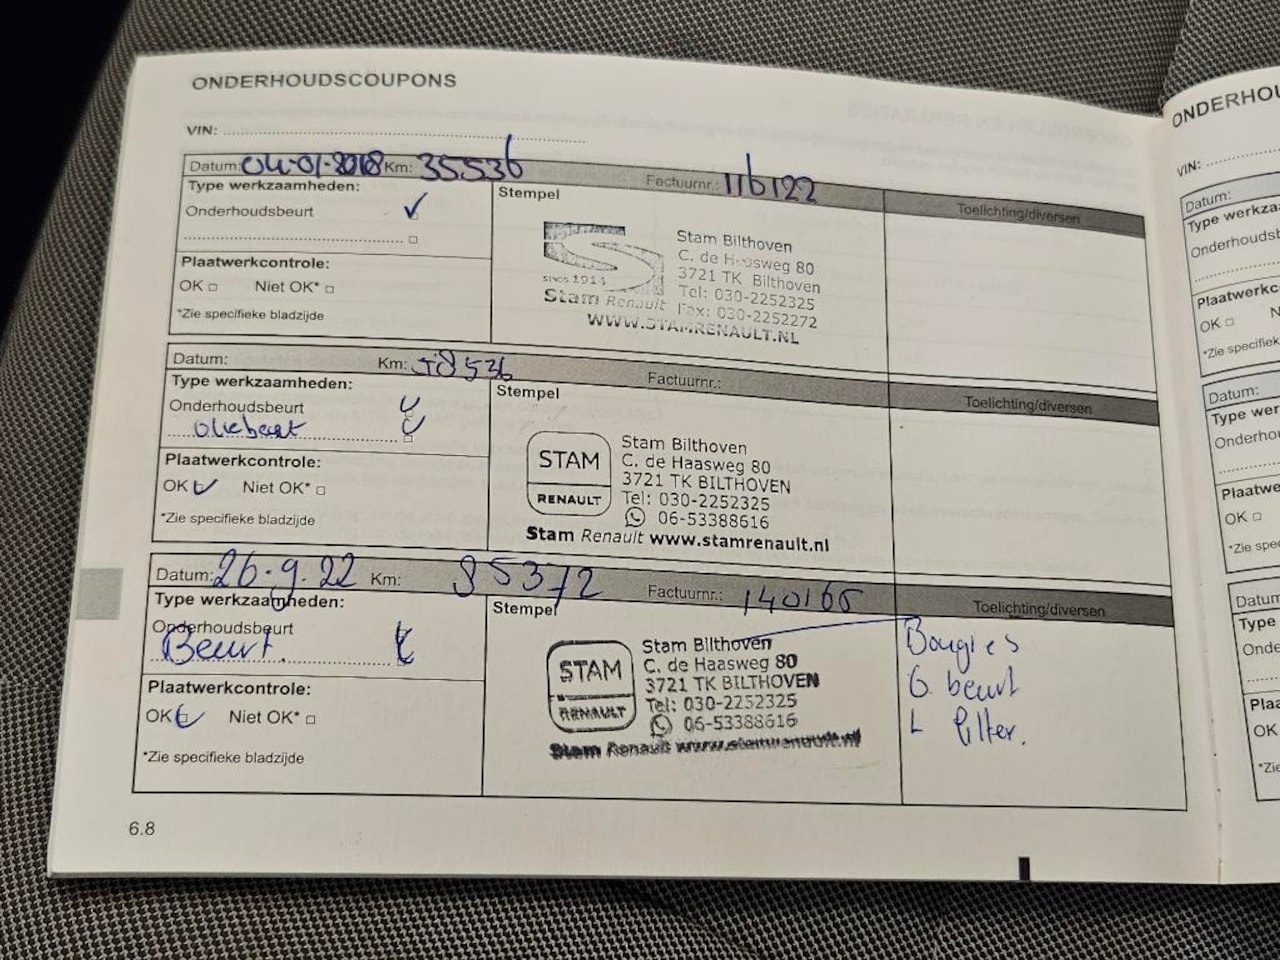 ONDERHOUDSCOUPONS
VIN:
Datum: 04-01-2018 Km: 35536 Factuurnr.: 116122
Type werkzaamheden:
Stempel
Toelichting/diversen
Onderhoudsbeurt ✓
Plaatwerkcontrole:
OK □ Niet OK* □
*Zie specifieke bladzijde
SINCE 1914
Stam Renault
Stam Bilthoven
C. de Haasweg 80
3721 TK Bilthoven
Tel: 030-2252325
Fax: 030-2252272
WWW.STAMRENAULT.NL
Datum: Km: 58536 Factuurnr.:
Type werkzaamheden:
Stempel
Toelichting/diversen
Onderhoudsbeurt
oliebeurt
Plaatwerkcontrole:
OK Niet OK* □
*Zie specifieke bladzijde
STAM
RENAULT
Stam Bilthoven
C. de Haasweg 80
3721 TK BILTHOVEN
Tel: 030-2252325
06-53388616
Stam Renault www.stamrenault.nl
Datum: 26-9-22 Km: 85372 Factuurnr.: 140165
Type werkzaamheden:
Stempel
Toelichting/diversen
Onderhoudsbeurt
Beurt.
Plaatwerkcontrole:
OK Niet OK* □
*Zie specifieke bladzijde
STAM
RENAULT
Stam Bilthoven
C. de Haasweg 80
3721 TK BILTHOVEN
Tel: 030-2252325
06-53388616
Stam Renault www.stamrenault.nl
Bougies
G. beurt
L filter.
6.8
ONDERHOU
VIN:
Datum:
Type werkza
Onderhoudsb
Plaatwerkc
OK □ N
*Zie specifieke
Datum:
Type wer
Onderhou
Plaatwe
OK □
*Zie spe
Datum
Type
Onde
Plaa
OK
*Zie